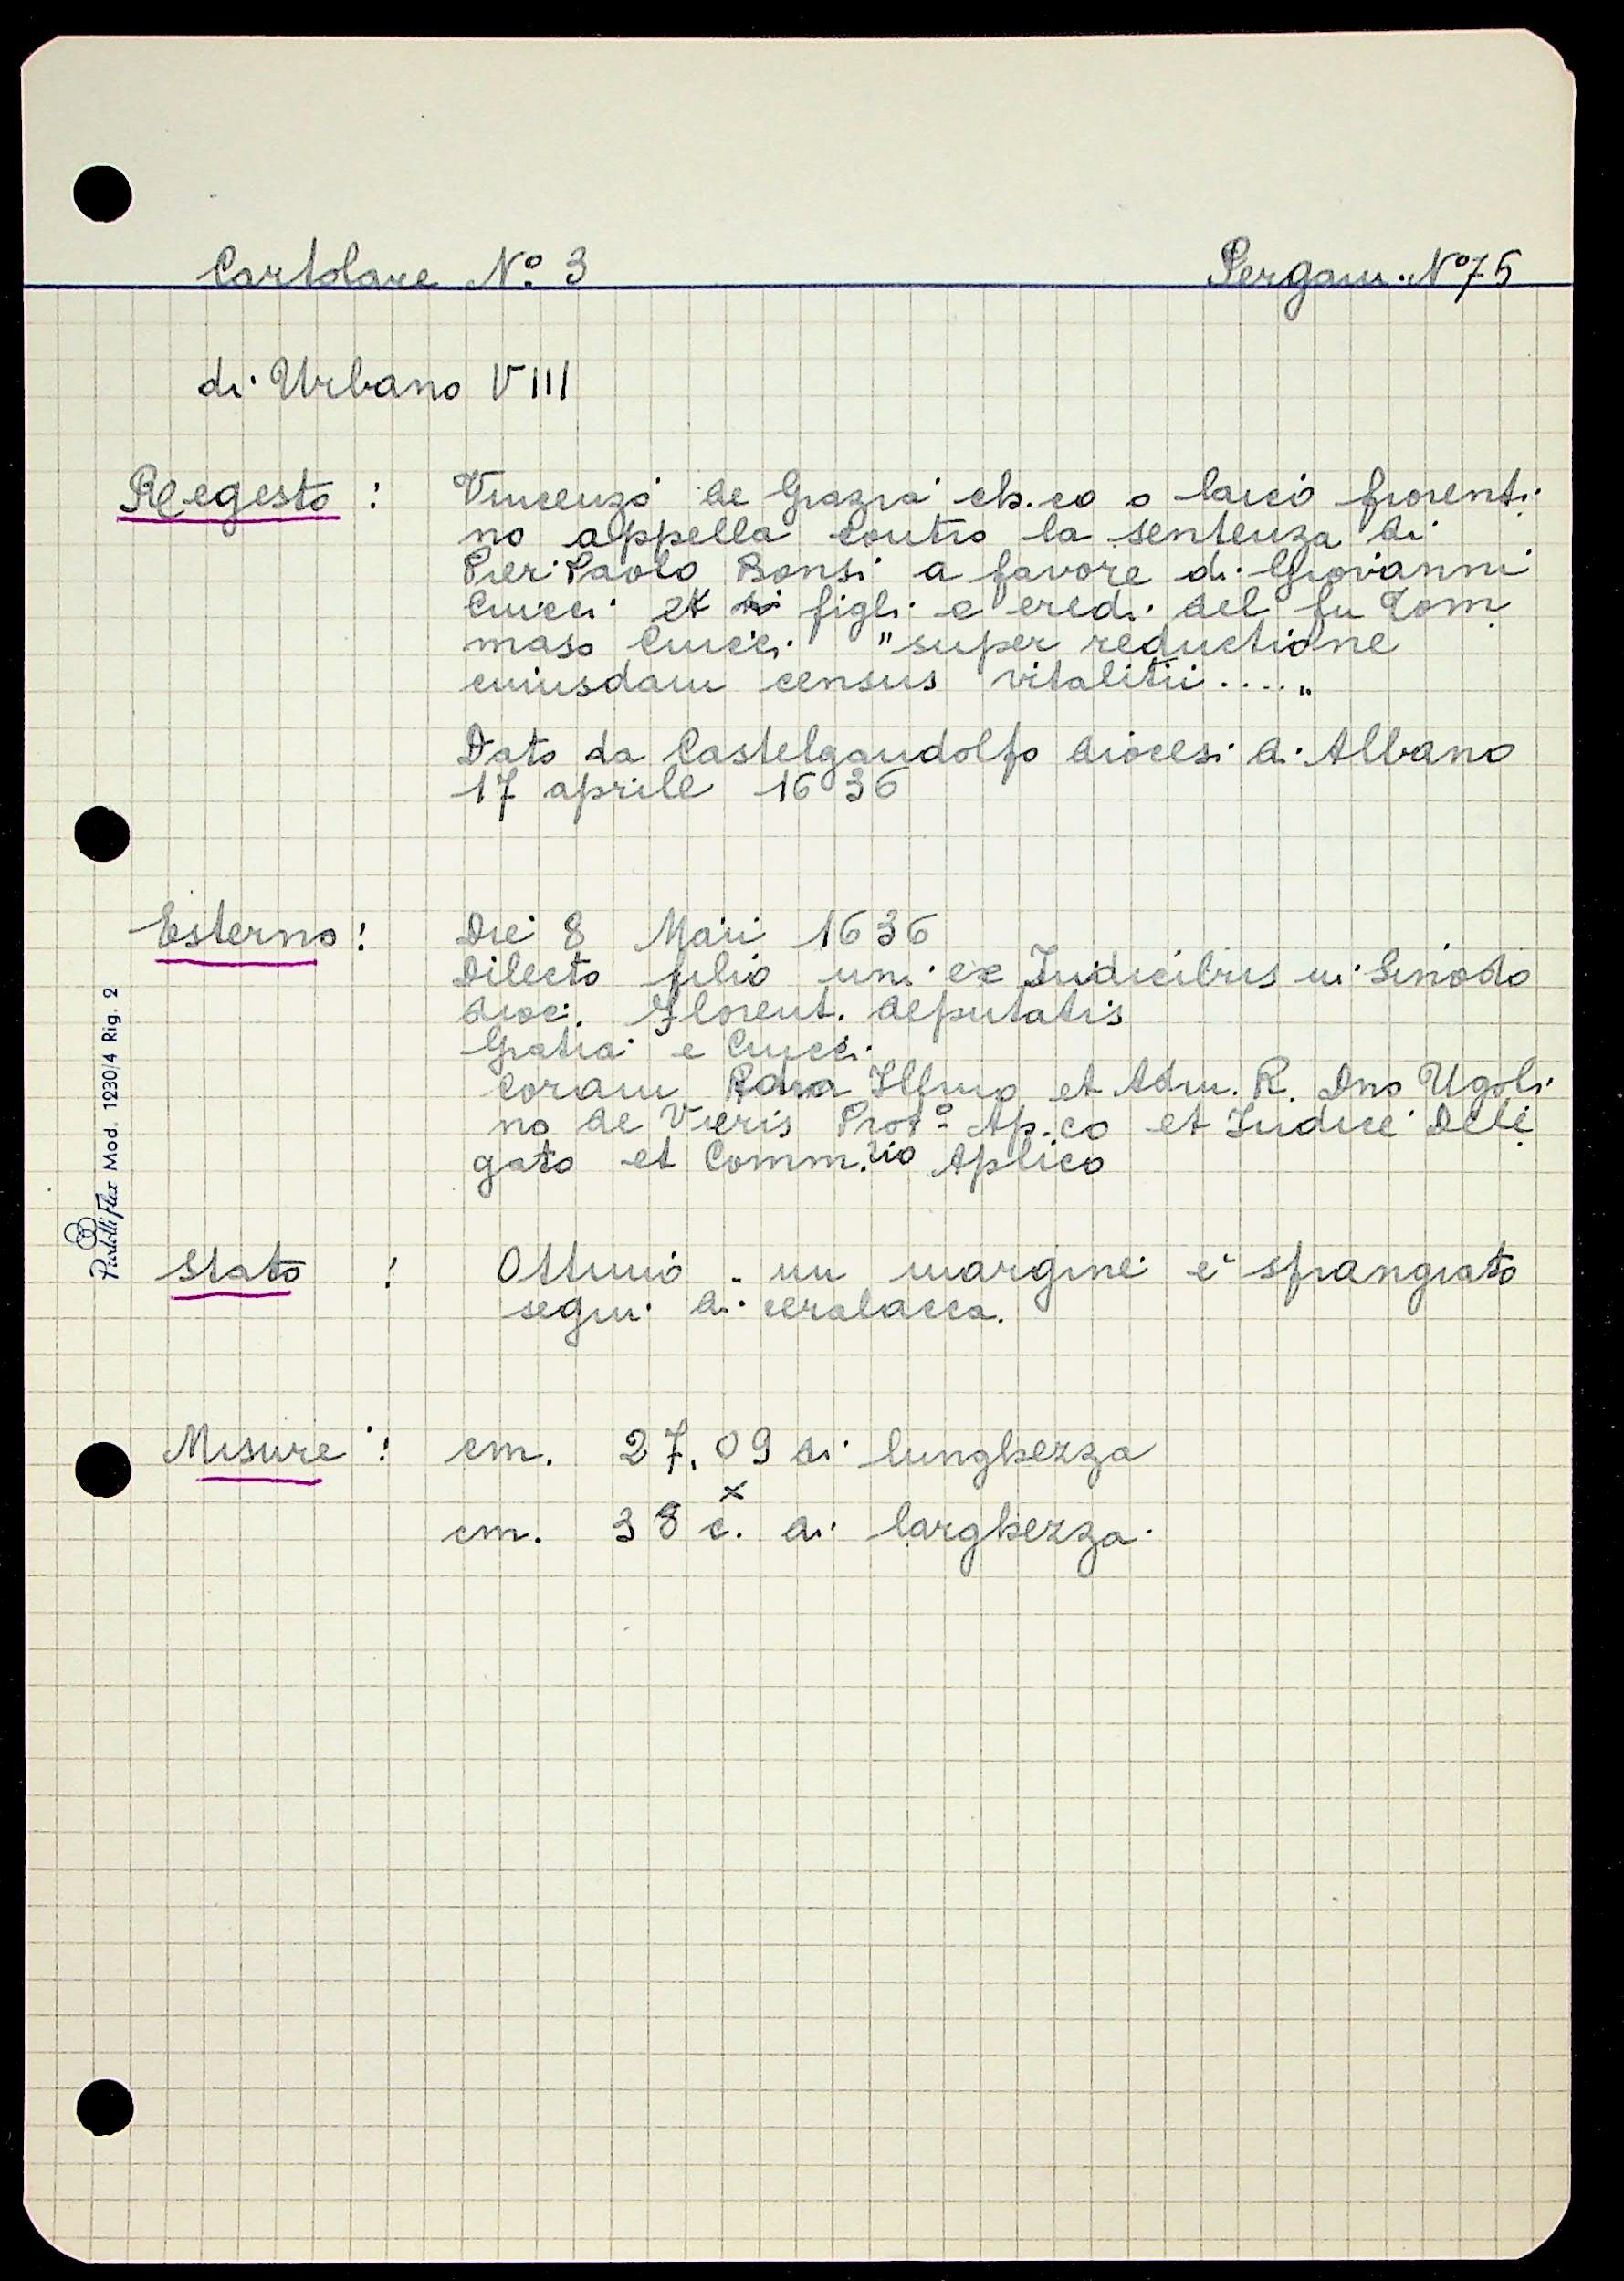 Cartolare N° 3 Pergam. N° 75
di Urbano VIII
Regesto : Vincenzo de Grazia ch.co o laico fiorenti
no appella contro la sentenza di
Pier Paolo Bonsi a favore di Giovanni
Ciucci et figli e eredi del fu Tom
maso Ciucci "super reductione
cuiusdam census vitalitii...."
Dato da Castelgandolfo diocesi di Albano
17 aprile 1636
Esterno : Die 8 Maii 1636
Dilecto filio uni ex Iudicibus in Sinodo
dioc. Florent. deputatis
Gratia e Ciucci
coram Illmo et Adm. R. Dno Ugoli
no de Vieris Prot° Ap.co et Iudice Dele
gato et Comm.rio Aplico
Stato : Ottimo - un margine è sfrangiato
segni di ceralacca.
Misure : cm. 27,09 di lunghezza
x
cm. 38 c. di larghezza
Mod. 1230/4 Rig. 2